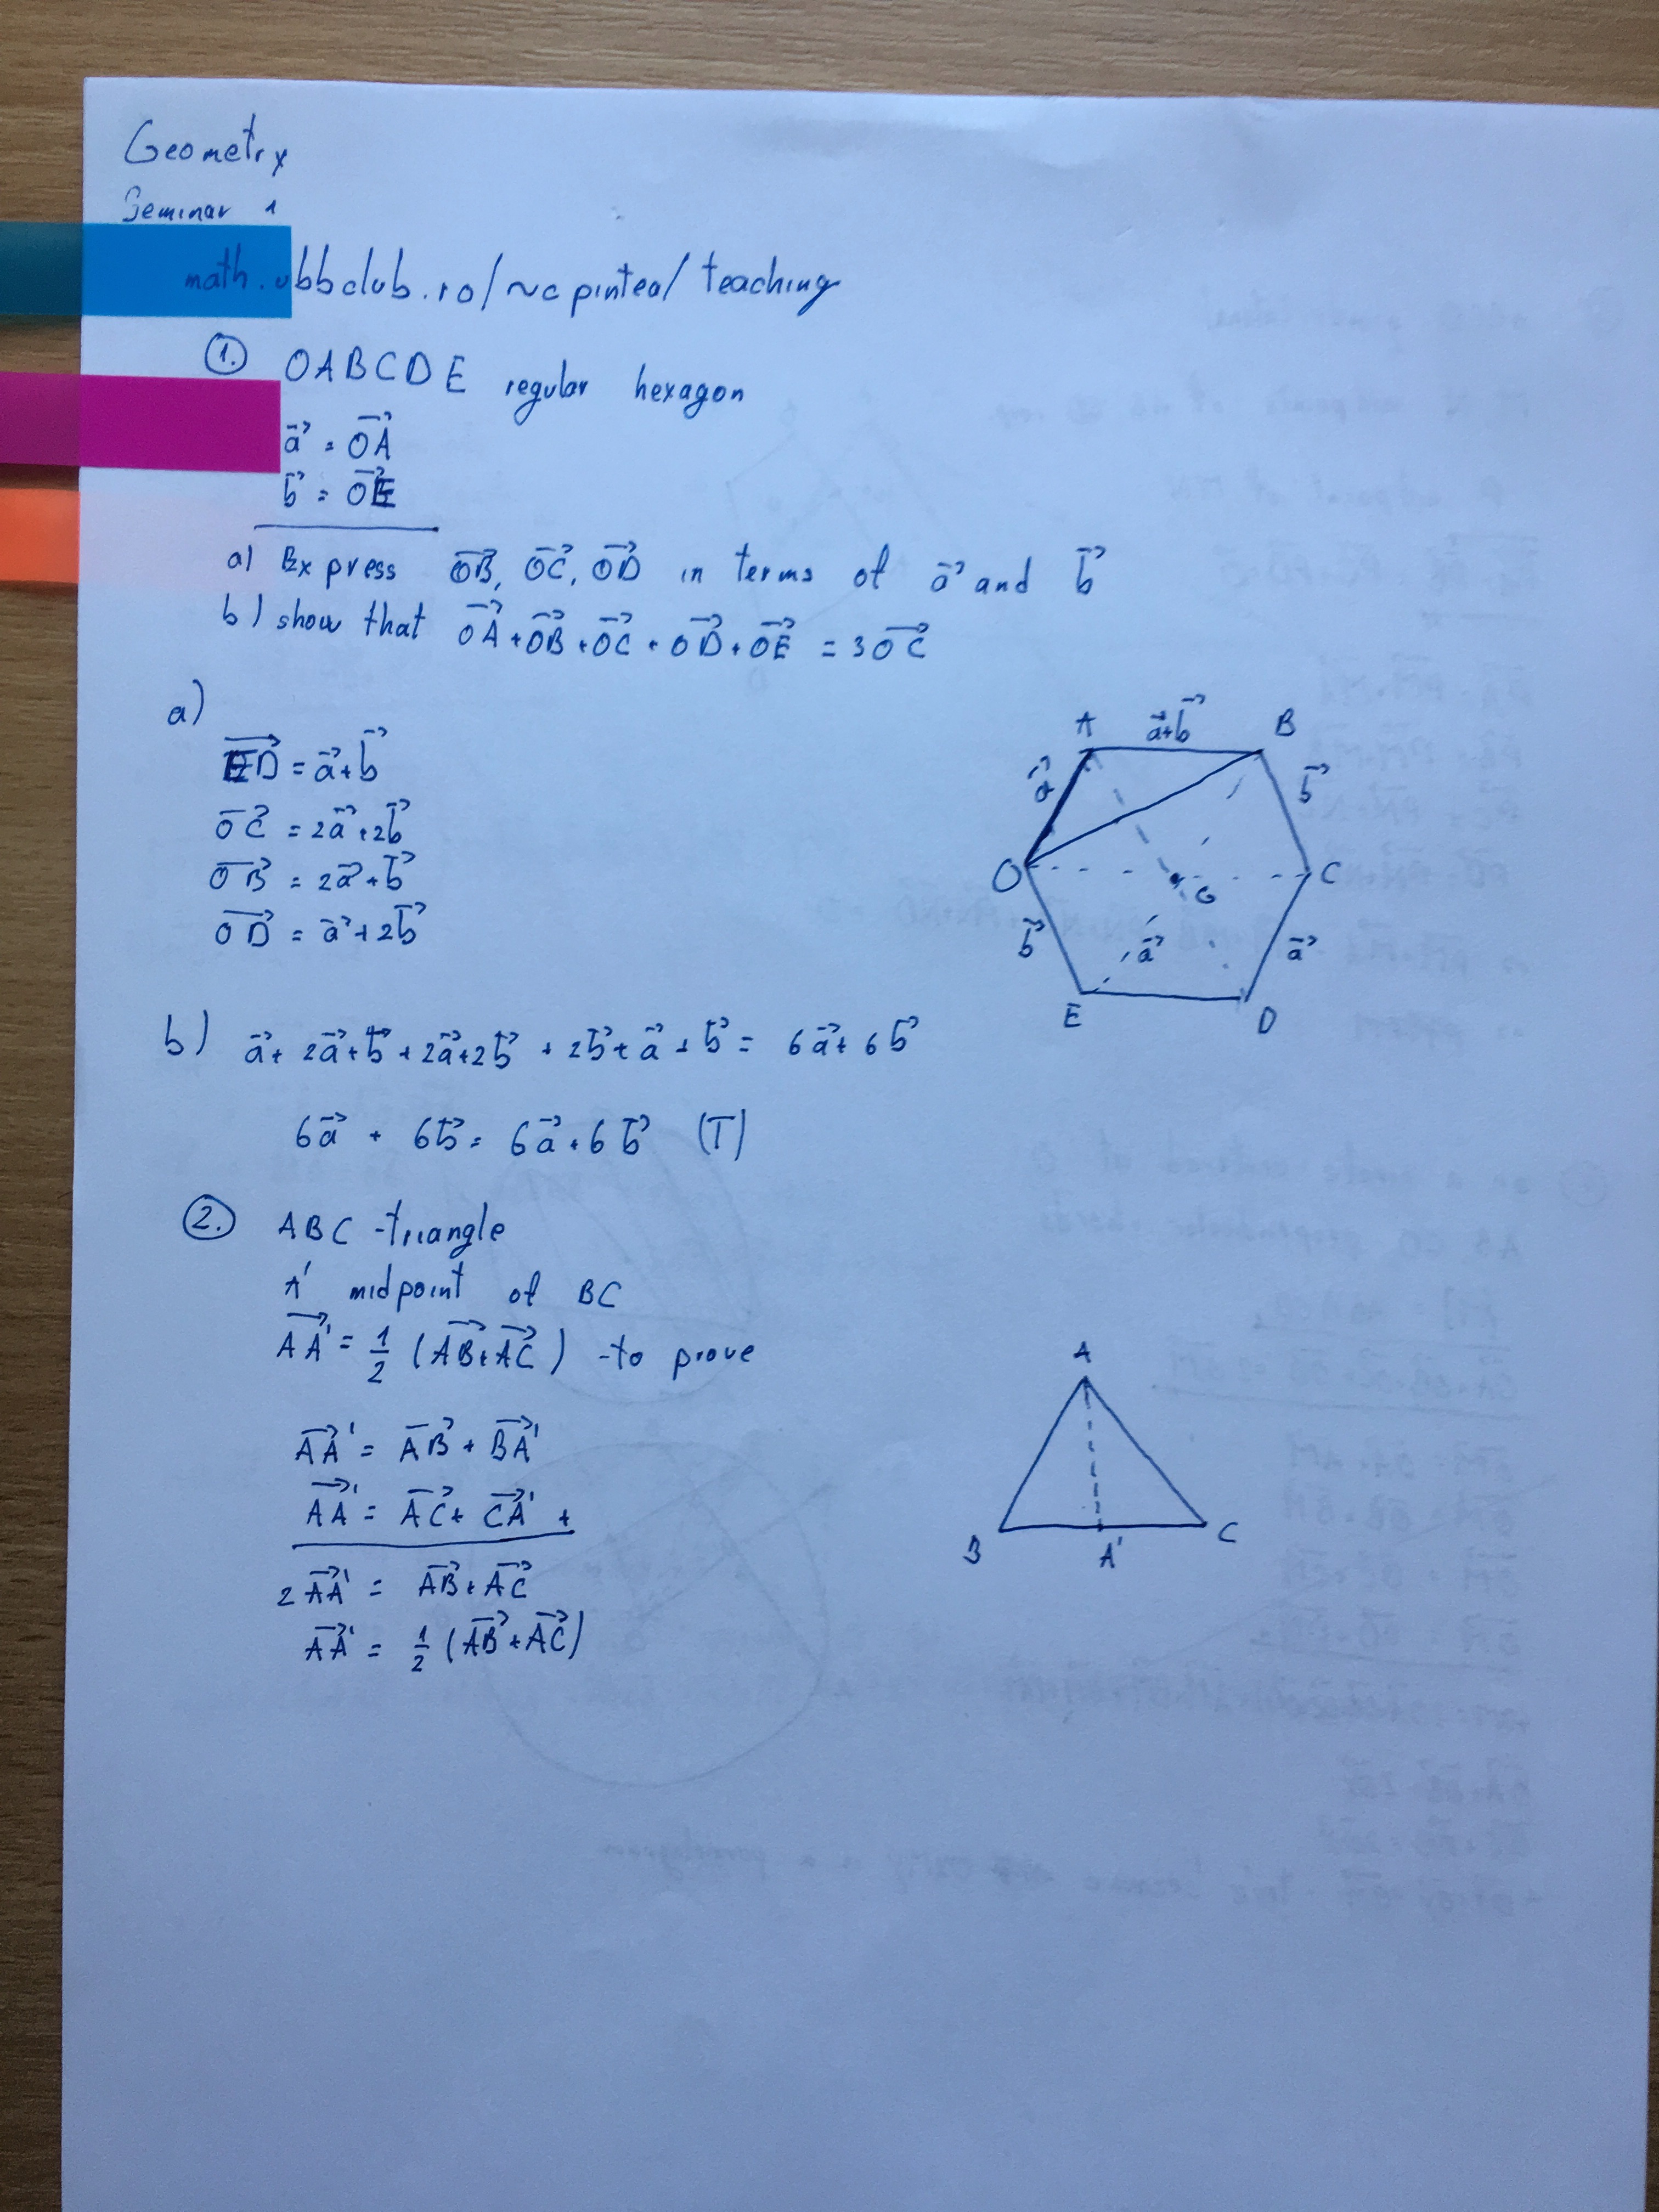 Geometry
Seminar 1
math.ubbclub.ro/~cpintea/teaching
1. OABCDE regular hexagon
a⃗ = OA⃗
b⃗ = OE⃗
a) Express OB⃗, OC⃗, OD⃗ in terms of a⃗ and b⃗
b) show that OA⃗ + OB⃗ + OC⃗ + OD⃗ + OE⃗ = 3OC⃗
a)
ED⃗ = a⃗+b⃗
OC⃗ = 2a⃗+2b⃗
OB⃗ = 2a⃗+b⃗
OD⃗ = a⃗+2b⃗
A a⃗+b⃗ B
a⃗ b⃗
O G C
b⃗ a⃗ a⃗
E D
b) a⃗+ 2a⃗+b⃗ + 2a⃗+2b⃗ + 2b⃗+a⃗ + b⃗ = 6a⃗+6b⃗
6a⃗ + 6b⃗ = 6a⃗+6b⃗ (T)
2. ABC - triangle
A' midpoint of BC
AA'⃗ = 1/2 (AB⃗+AC⃗) - to prove
AA'⃗ = AB⃗ + BA'⃗
AA'⃗ = AC⃗ + CA'⃗ +
2AA'⃗ = AB⃗+AC⃗
AA'⃗ = 1/2 (AB⃗+AC⃗)
A
B A' C